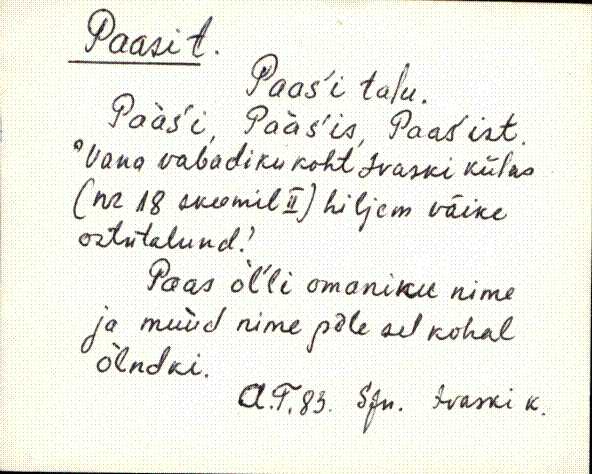 Paasit.
Paaśi talu.
Pàaśi, Pàaśis, Paaśist.
"Vana vabadiku koht Ivaski külas
(nr 18 skeemil II) hiljem väike
ostutalund."
Paas òĺli omaniku nime
ja muùd nime põle sel kohal
òlndki.
A.T. 83. Sjn. Ivaski k.